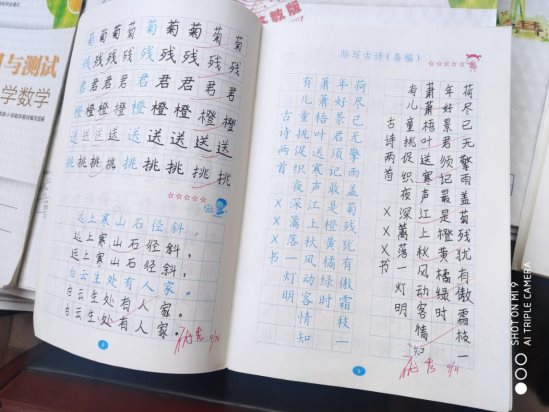 教版
与测试
学数学
菊 菊 菊 菊 菊 菊 菊
残 残 残 残 残 残 残
君 君 君 君 君 君 君
橙 橙 橙 橙 橙 橙 橙
送 送 送 送 送 送 送
挑 挑 挑 挑 挑 挑 挑
远上寒山石径斜,
远上寒山石径斜,
远上寒山石径斜,
白云生处有人家。
白云生处有人家。
白云生处有人家。
8
临写古诗(条幅)
荷尽已无擎雨盖菊残犹有傲霜枝一
年好景君须记最是橙黄橘绿时
萧萧梧叶送寒声江上秋风动客情知
有儿童挑促织夜深篱落一灯明
古诗两首 XXX书
荷尽已无擎雨盖菊残犹有傲霜枝一
年好景君须记最是橙黄橘绿时
萧萧梧叶送寒声江上秋风动客情知
有儿童挑促织夜深篱落一灯明
古诗两首 XXX书
9
SHOT ON MI 9
AI TRIPLE CAMERA